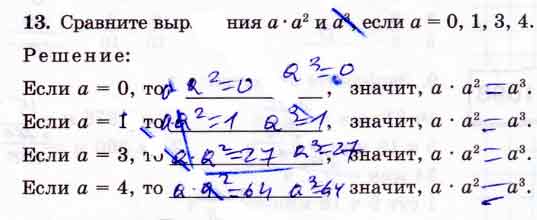 13. Сравните выр ния a · a² и a³, если a = 0, 1, 3, 4.
Решение:
Если a = 0, то a² = 0 a³ = 0, значит, a · a² = a³.
Если a = 1 то a·a² = 1 a³ = 1, значит, a · a² = a³.
Если a = 3, то a·a² = 27 a³ = 27, значит, a · a² = a³.
Если a = 4, то a·a² = 64 a³ = 64 значит, a · a² = a³.